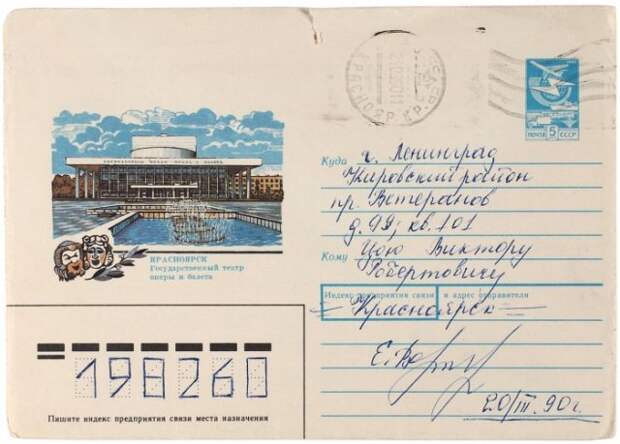 КРАСНОЯРСК
ПОЧТА 5 СССР
Куда г. Ленинград
Кировский район
пр. Ветеранов
д. 99; кв. 101
Кому Цою Виктору
Робертовичу
КРАСНОЯРСК
Государственный театр
оперы и балета
Индекс предприятия связи и адрес отправителя
Красноярск
20/III. 90 г.
198260
Пишите индекс предприятия связи места назначения